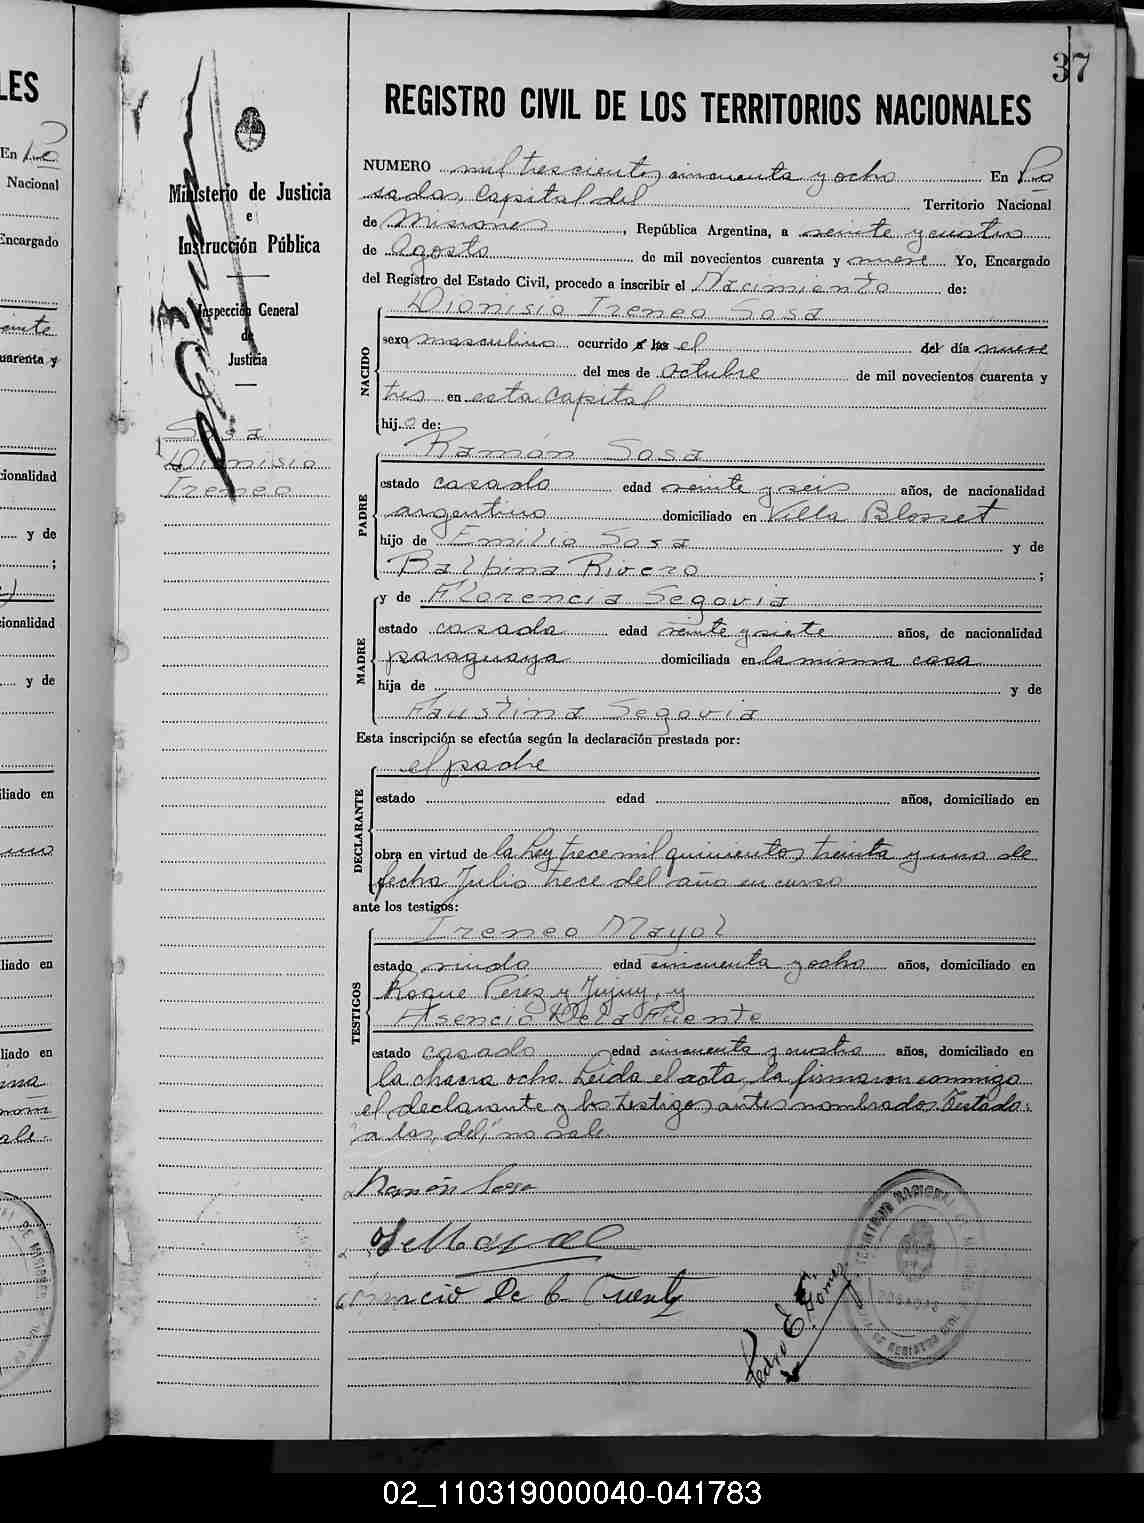 37
REGISTRO CIVIL DE LOS TERRITORIOS NACIONALES
NUMERO mil trescientos cincuenta y ocho En Po
sadas, Capital del Territorio Nacional
de Misiones, República Argentina, a veinte y cuatro
de Agosto de mil novecientos cuarenta y nueve Yo, Encargado
del Registro del Estado Civil, procedo a inscribir el Nacimiento de:
Dionisio Ireneo Sosa
NACIDO
sexo masculino ocurrido a las el del día nueve
del mes de octubre de mil novecientos cuarenta y
tres en esta Capital
hijo de:
Ramón Sosa
PADRE
estado casado edad veinte y seis años, de nacionalidad
argentino domiciliado en Villa Blosset
hijo de Emilio Sosa y de
Balbina Rivero ;
y de Florencia Segovia
MADRE
estado casada edad veinte y siete años, de nacionalidad
paraguaya domiciliada en la misma casa
hija de y de
Faustina Segovia
Esta inscripción se efectúa según la declaración prestada por:
el padre
DECLARANTE
estado edad años, domiciliado en
obra en virtud de la Ley trece mil quinientos treinta y uno de
fecha Julio trece del año en curso
ante los testigos:
Ireneo Mayol
TESTIGOS
estado viudo edad cincuenta y ocho años, domiciliado en
Roque Pérez y Jujuy, y
Asencio De la Fuente
estado casado edad cincuenta y cuatro años, domiciliado en
la chacra ocho. Leida el acta, la firmaron conmigo
el declarante y los testigos antes nombrados. Testado:
"a las, del," no vale.
Ramón Sosa
De la Fuente
Pedro E. Gómez
Ministerio de Justicia
e
Instrucción Pública
Inspección General
de
Justicia
Sosa
Dionisio
Ireneo
LES
En Po
Nacional
Encargado
cuarenta y
cionalidad
y de
;
cionalidad
y de
iliado en
liado en
liado en
02_110319000040-041783